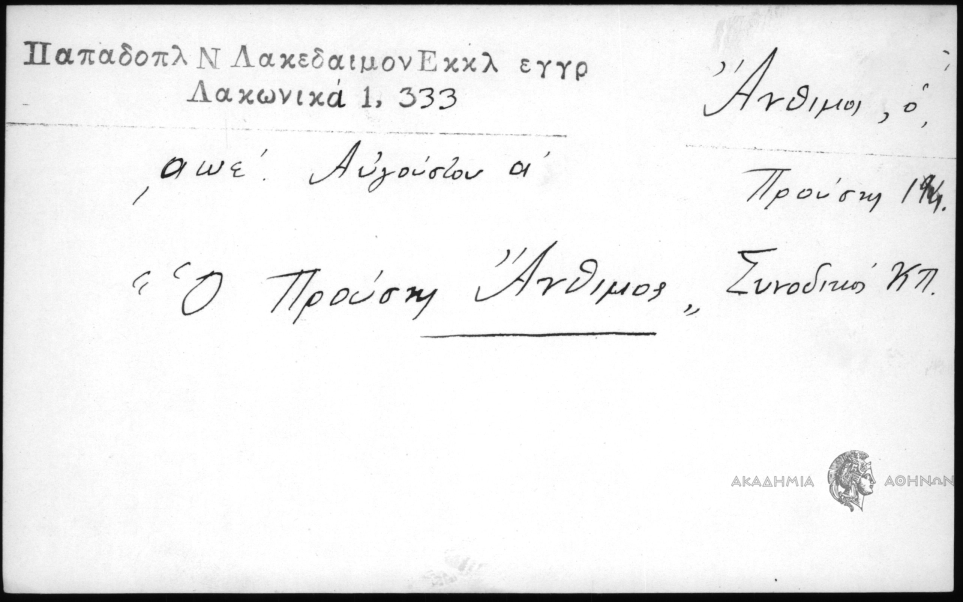 Παπαδοπλ Ν Λακεδαιμον Εκκλ εγγρ
Λακωνικά 1, 333
Ἄνθιμος, ὁ,
Προύσης
͵αωέ. Αὐγούστου α΄
“Ὁ Προύσης Ἄνθιμος„ Συνοδικός ΚΠ.
ΑΚΑΔΗΜΙΑ ΑΘΗΝΩΝ